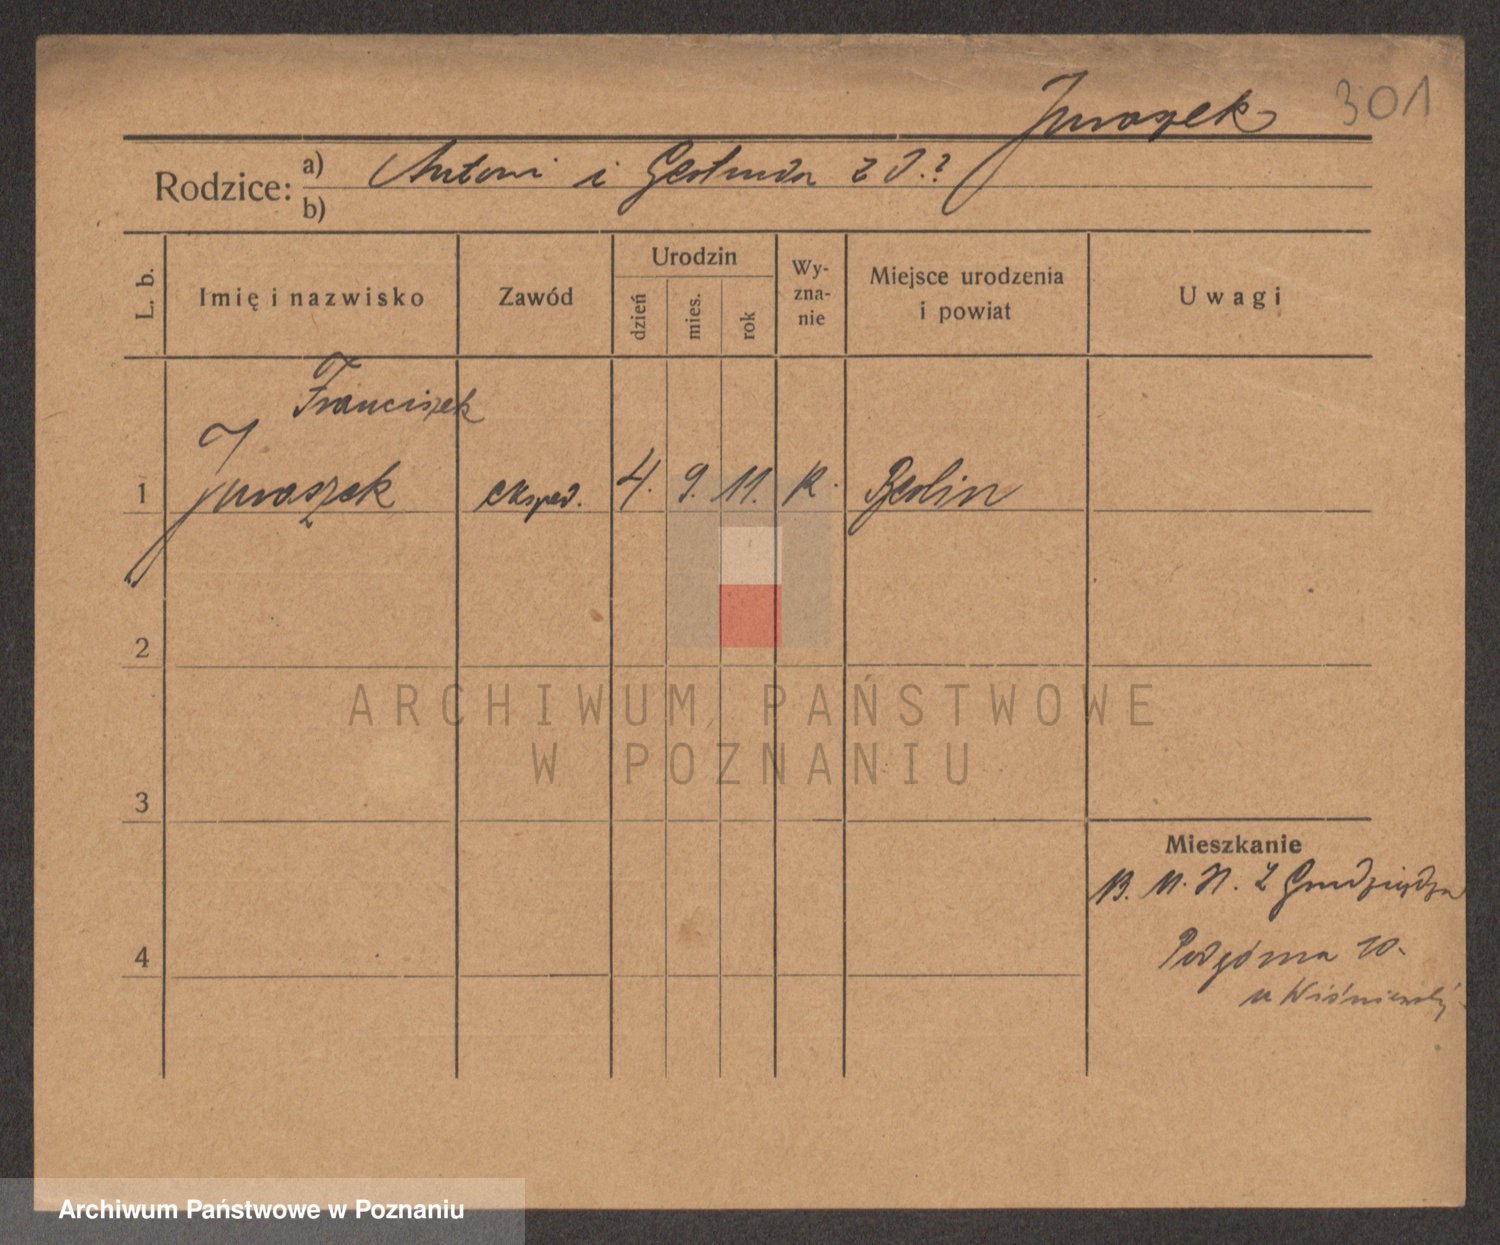 Juraszek 301
Rodzice: a) Antoni i Gertruda z d.?
b)
L. b.
Imię i nazwisko
Zawód
Urodzin
dzień
mies.
rok
Wy-
zna-
nie
Miejsce urodzenia
i powiat
Uwagi
Franciszek
1 Juraszek eksped. 4. 9. 11. Berlin
2
3
4
Mieszkanie
z Grudziądza
Podgórna 10.
u Wiśniewskiej
ARCHIWUM PAŃSTWOWE
W POZNANIU
Archiwum Państwowe w Poznaniu